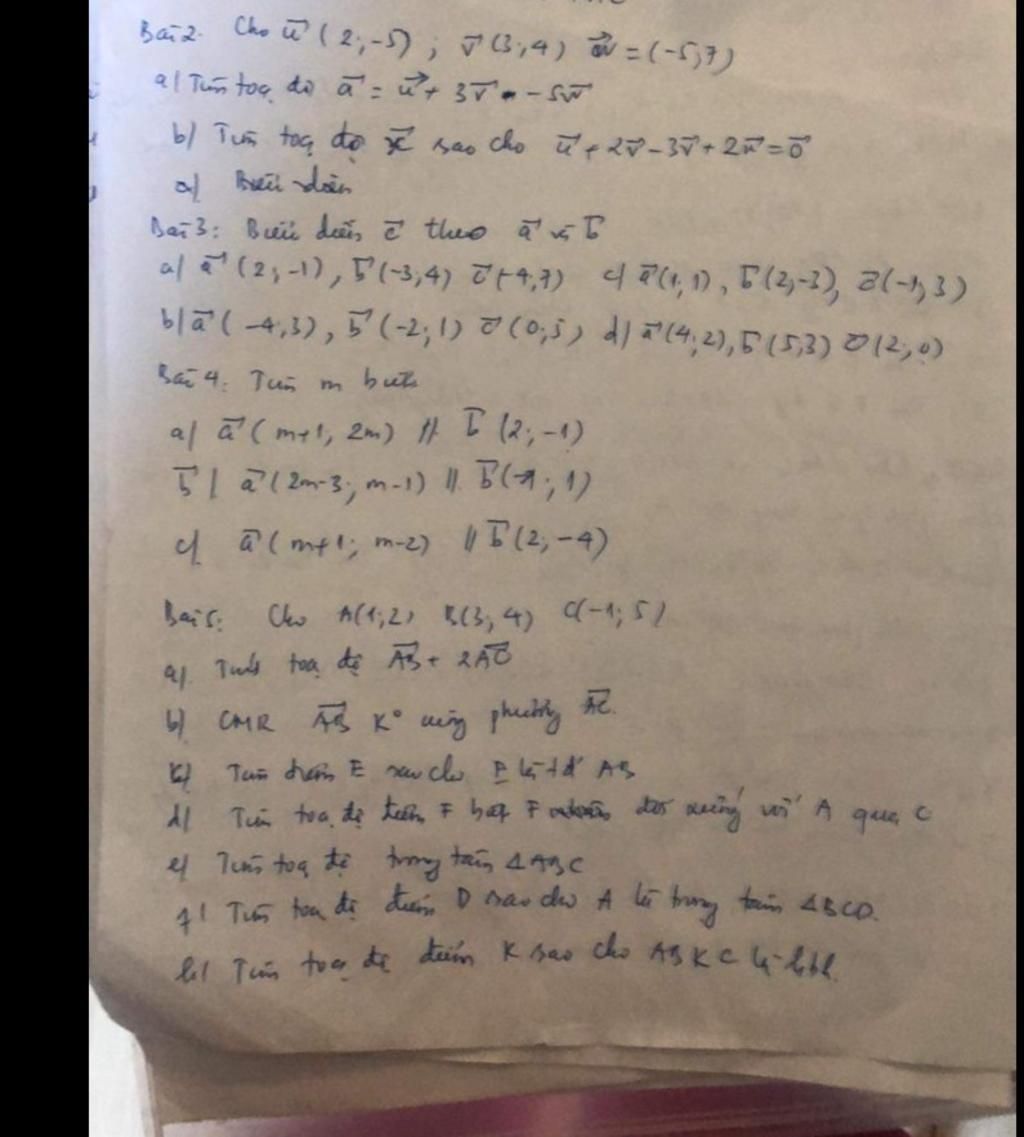 Bài 2. Cho u⃗ (2;-5) ; v⃗ (3;4) w⃗ = (-5;7)
a/ Tìm toạ độ a⃗ = u⃗ + 3v⃗ - 5w⃗
b/ Tìm toạ độ x⃗ sao cho u⃗ + 2v⃗ - 3v⃗ + 2x⃗ = 0⃗
a/ Biểu diễn
Bài 3: Biểu diễn c⃗ theo a⃗ và b⃗
a/ a⃗ (2;-1), b⃗ (-3,4) c⃗ (-4,7) c/ a⃗ (1;1), b⃗ (2;-3), c⃗ (-1;3)
b/ a⃗ (-4,3), b⃗ (-2;1) c⃗ (0;5) d/ a⃗ (4;2), b⃗ (5,3) c⃗ (2;0)
Bài 4: Tìm m biết
a/ a⃗ (m+1, 2m) // b⃗ (2;-1)
b/ a⃗ (2m-3; m-1) // b⃗ (-1; 1)
c/ a⃗ (m+1; m-2) // b⃗ (2;-4)
Bài 5: Cho A(1;2) B(3;4) C(-1;5)
a/. Tính toạ độ AB⃗ + 2AC⃗
b/ CMR AB⃗ K° cùng phương AC⃗.
c/ Tìm điểm E sao cho E là tđ AB
d/ Tìm toạ độ điểm F biết F đối xứng với A qua C
e/ Tìm toạ độ trọng tâm ΔABC
f/ Tìm toạ độ điểm D sao cho A là trọng tâm ΔBCD.
h/ Tìm toạ độ điểm K sao cho ABKC là hbh.